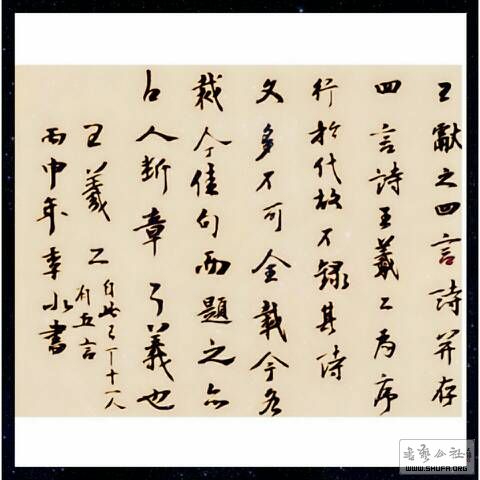 王獻之四言詩并
四言詩王羲之為序
行於代故不錄其詩
文多不可全載今各
裁佳句而題之亦
古人斷章之義也
王羲之
自此已下十一人
有五言
丙申年書
WWW.SHUFA.ORG